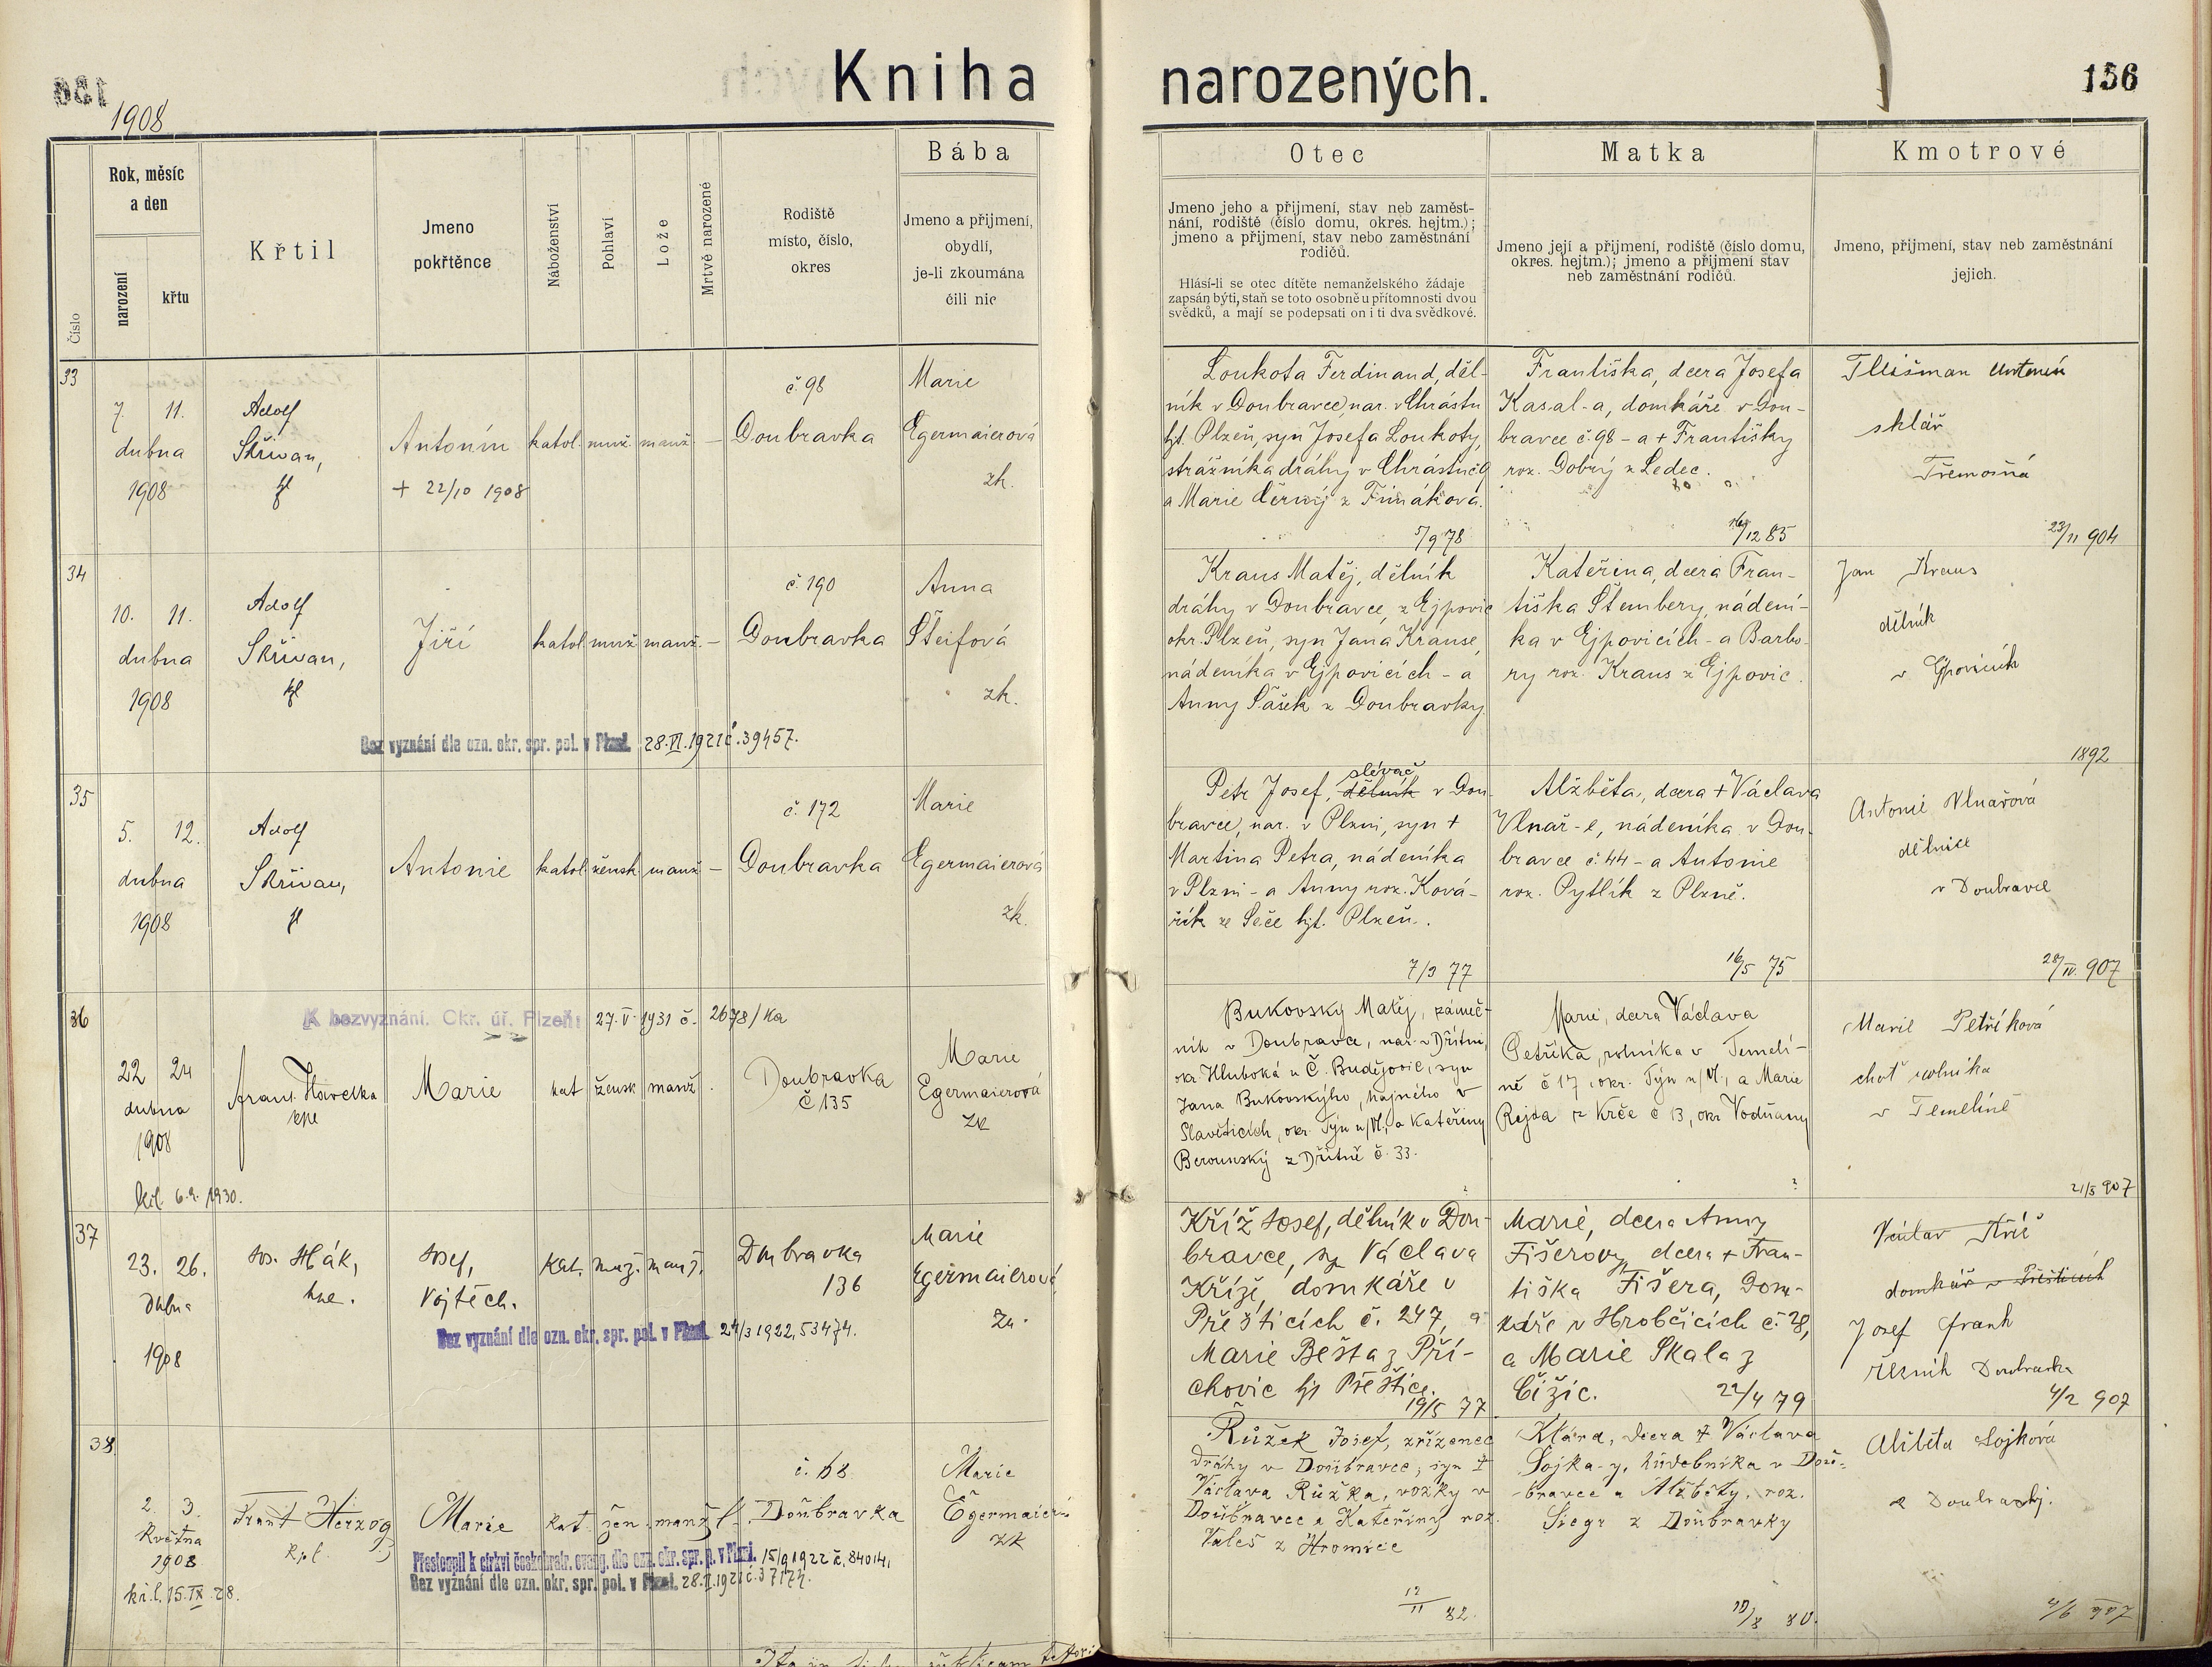 Kniha narozených.
156
1908
Číslo
Rok, měsíc
a den
narození
křtu
Křtil
Jmeno
pokřtěnce
Náboženství
Pohlaví
Lože
Mrtvě narozené
Rodiště
místo, číslo,
okres
Bába
Jmeno a příjmení,
obydlí,
je-li zkoumána
čili nic
Otec
Jmeno jeho a příjmení, stav neb zaměst-
nání, rodiště (číslo domu, okres. hejtm.);
jmeno a příjmení, stav nebo zaměstnání
rodičů.
Hlásí-li se otec dítěte nemanželského žádaje
zapsán býti, staň se toto osobně u přítomnosti dvou
svědků, a mají se podepsati on i ti dva svědkové.
Matka
Jmeno její a příjmení, rodiště (číslo domu,
okres. hejtm.); jmeno a příjmení stav
neb zaměstnání rodičů.
Kmotrové
Jmeno, přijmení, stav neb zaměstnání
jejich.
33
7. 11.
dubna
1908
Adolf
Skřivan,
Antonín
+ 22/10 1908
katol. muž. manž. –
č. 98
Doubravka
Marie
Egermaierová
zk.
Loukota Ferdinand, děl-
ník v Doubravce, nar. v Chrástu
hjt. Plzeň, syn Josefa Loukoty,
strážníka dráhy v Chrástu č. 9
a Marie Černý z
5/9 78
Františka, dcera Josefa
Kasal-a, domkáře v Dou-
bravce č. 98 – a + Františky
roz. Dobrý z Ledec.
16/12 85
Antonín
sklář
Třemošná
23/11 904
34
10. 11.
dubna
1908
Adolf
Skřivan,
Jiří
katol. muž. manž. –
č. 190
Doubravka
Anna
Šteifová
zk.
Bez vyznání dle ozn. okr. spr. pol. v Plzni. 28.VI.1921 č. 39457.
Kraus Matěj, dělník
dráhy v Doubravce, z Ejpovic
okr. Plzeň, syn Jana Krause,
nádeníka v Ejpovicích – a
Anny Šašek z Doubravky.
Kateřina, dcera Fran-
tiška Štembery, nádení-
ka v Ejpovicích – a Barbo-
ry roz. Kraus z Ejpovic.
Jan Kraus
dělník
v Ejpovicích
1892
35
5. 12.
dubna
1908
Adolf
Skřivan,
Antonie
katol. žensk. manž. –
č. 172
Doubravka
Marie
Egermaierová
zk.
Petr Josef, dělník slévač v Dou-
bravce, nar. v Plzni, syn +
Martina Petra, nádeníka
v Plzni – a Anny roz. Ková-
řík ze Seče hjt. Plzeň.
7/3 77
Alžběta, dcera + Václava
Vlnař-e, nádeníka v Dou-
bravce č. 44 – a Antonie
roz. Pytlík z Plzně.
16/5 75
Antonie Vlnařová
dělnice
v Doubravce
28/IV. 907
36
K bezvyznání. Okr. úř. Plzeň: 27.V.1931 č. 2678/Ka
22 24
dubna
1908
Frant. Havelka
kpe
Marie
kat žensk manž.
Doubravka
č 135
Marie
Egermaierová
zk
Bukovský Matěj,
ník v Doubravce, nar. v Dřítni,
okr. Hluboká u Č. Budějovic, syn
Jana Bukovského, hajného v
Slavěticích, okr. Týn n/Vl., a Kateřiny
Berounský z Dřítně č. 33.
Marie, dcera Václava
Petříka, rolníka v Temelí-
ně č 17, okr. Týn n/Vl., a Marie
Rejda z Krče č 13, okr. Vodňany
Marie Petříková
choť rolníka
v Temelíně
21/5 907
37
23. 26.
Dubna
1908
Jos. Hák,
Josef,
Vojtěch.
Kat. muž. manž.
Doubravka
136
Marie
Egermaierová
Zk.
Bez vyznání dle ozn. okr. spr. pol. v Plzni. 24/3 1922, 53474.
Kříž Josef, dělník v Dou-
bravce, sy Václava
Kříže, domkáře v
Přešticích č. 247, a
Marie Bešta z Pří-
chovic hjt Přeštice.
19/5 77
Marie, dcera Anny
Fišerovy, dcera + Fran-
tiška Fišera, Dom-
káře v Hrobčicích č. 28,
a Marie Skala z
Čižic. 22/4 79
Václav Kříž
domkář v Přešticích
Josef Frank
řezník Doubravka
4/2 907
38
2. 3.
Května
1908
Frant Herzog
Kpl.
Marie
kat. žen. manž.
č. 68
Doubravka
Marie
Egermaierová
zk
Přestoupil k církvi českobratr. evang. dle ozn. okr. spr. p. v Plzni. 15/9 1922 č. 84014.
Bez vyznání dle ozn. okr. spr. pol. v Plzni.
Růžek Josef, zřízenec
dráhy v Doubravce, syn +
Václava Růžka, vozky v
Doubravce a Kateřiny roz.
Valeš z Hromnice
12/11 82.
Klára, dcera + Václava
Sojka-y, hudebníka v Dou-
bravce a Alžběty, roz.
Siegr z Doubravky
Alžběta Sojková
z Doubravky.